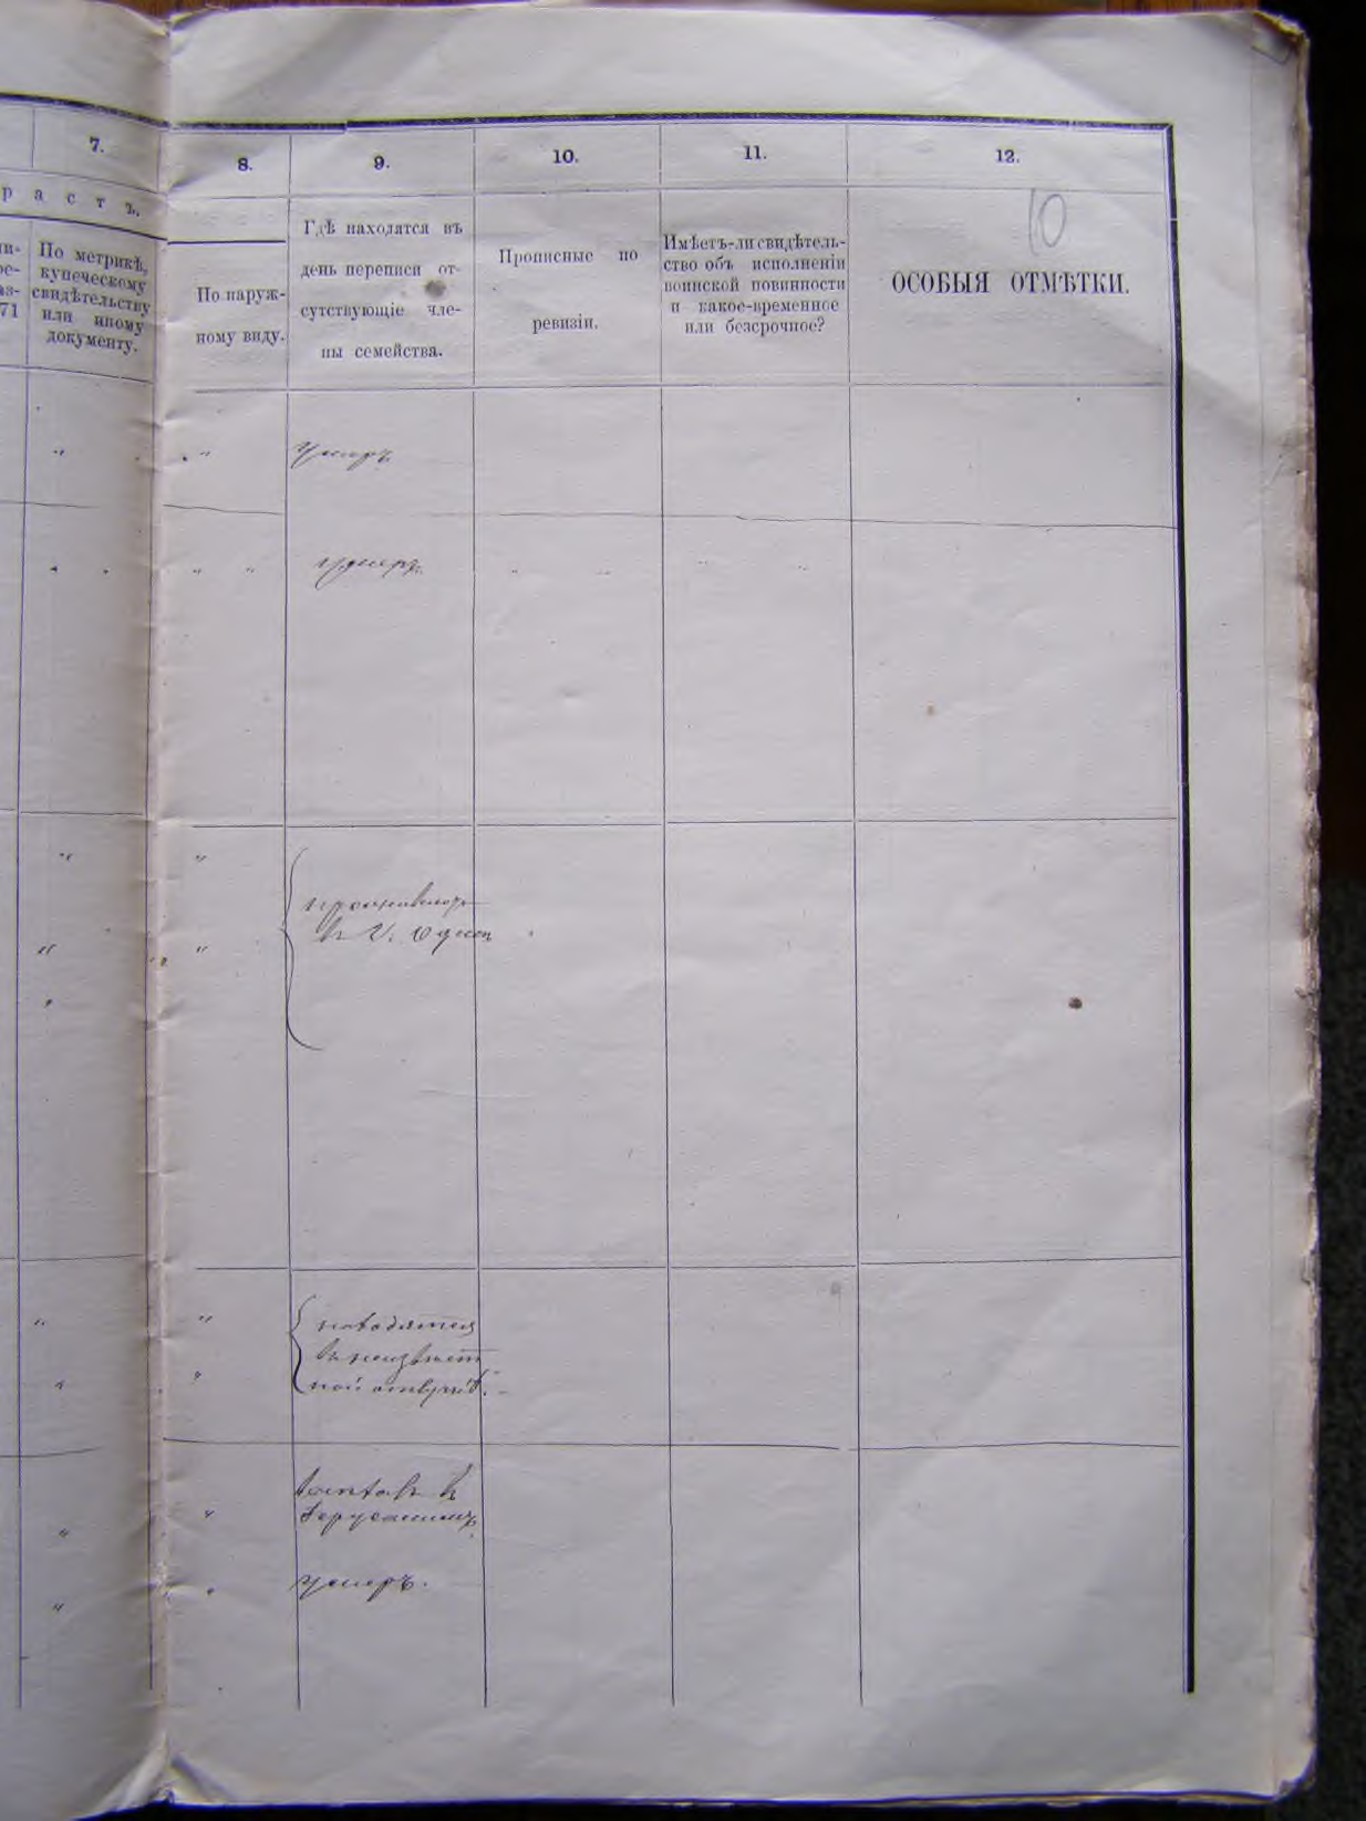 7.
8.
9.
10.
11.
12.
р а с т ъ.
10
По метрикѣ,
купеческому
свидѣтельству
или иному
документу.
71
По наруж-
ному виду.
Гдѣ находятся въ
день переписи от-
сутствующіе чле-
ны семейства.
Прописные по
ревизіи.
Имѣетъ-ли свидѣтель-
ство объ исполненіи
воинской повинности
и какое-временное
или безсрочное?
ОСОБЫЯ ОТМѢТКИ.
умеръ
умеръ
проживаютъ
въ г. Одессѣ
находятся
въ неизвѣст
ной отлучкѣ.
въ
Іерусалимъ
умеръ.